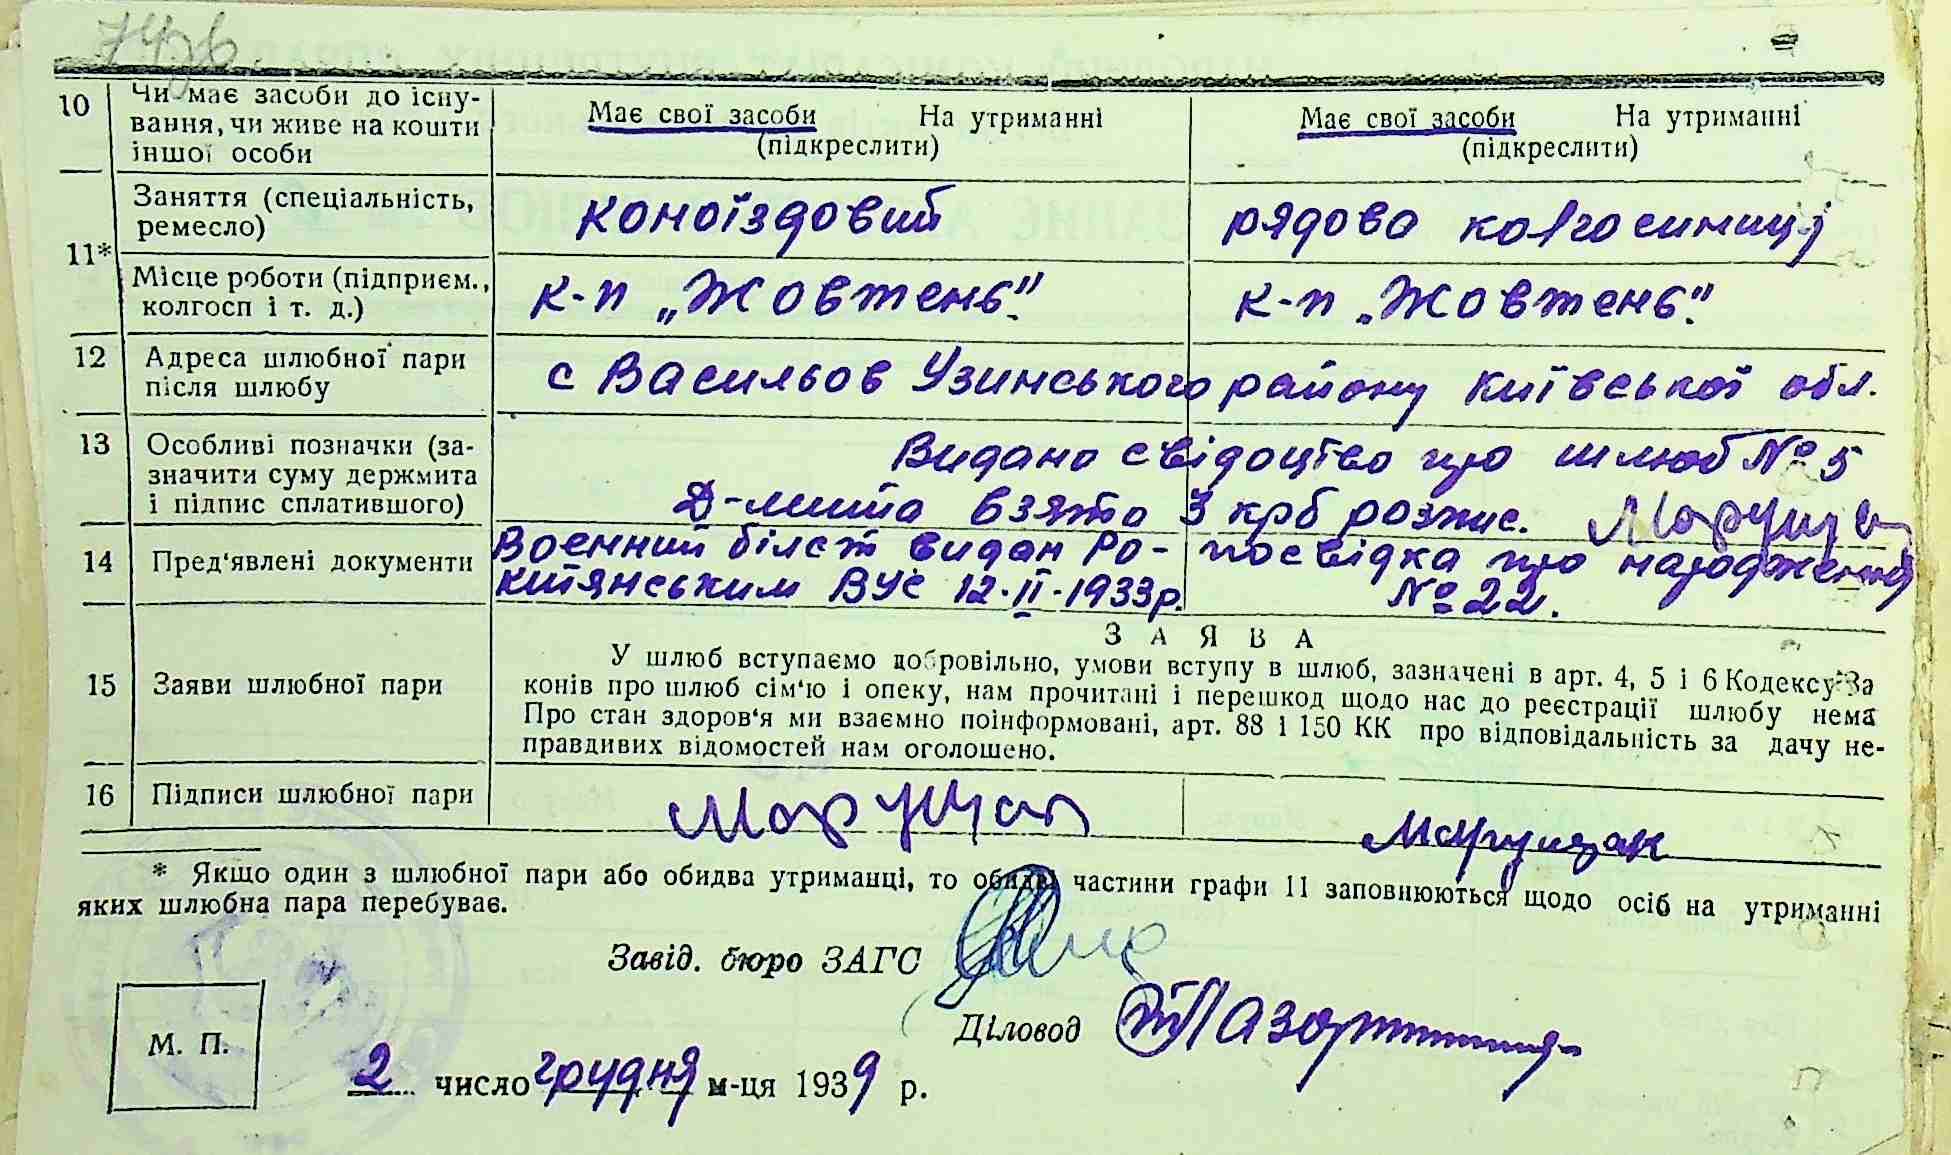 10
Чи має засоби до існу-
вання, чи живе на кошти
іншої особи
Має свої засоби На утриманні
(підкреслити)
Має свої засоби На утриманні
(підкреслити)
11*
Заняття (спеціальність,
ремесло)
коноїздовий
рядова колгосниці
Місце роботи (підприєм.,
колгосп і т. д.)
к-п „Жовтень".
к-п „Жовтень".
12
Адреса шлюбної пари
після шлюбу
с Васильов Узинського району Київської обл.
13
Особливі позначки (за-
значити суму держмита
і підпис сплатившого)
Видано свідоцтво про шлюб № 5
Д-мита взято 3 крб розпис.
14
Пред'явлені документи
Воєнний білєт видан Ро-
китянським ВУС 12-II-1933р.
посвідка про народження
№ 22.
15
Заяви шлюбної пари
ЗАЯВА
У шлюб вступаємо добровільно, умови вступу в шлюб, зазначені в арт. 4, 5 і 6 Кодексу За
конів про шлюб сім'ю і опеку, нам прочитані і перешкод щодо нас до реєстрації шлюбу нема
Про стан здоров'я ми взаємно поінформовані, арт. 88 і 150 КК про відповідальність за дачу не-
правдивих відомостей нам оголошено.
16
Підписи шлюбної пари
Марущак
Марущак
* Якщо один з шлюбної пари або обидва утриманці, то обидві частини графи 11 заповнюються щодо осіб на утриманні
яких шлюбна пара перебуває.
Завід. бюро ЗАГС
Діловод
М. П.
2 число грудня м-ця 1939 р.